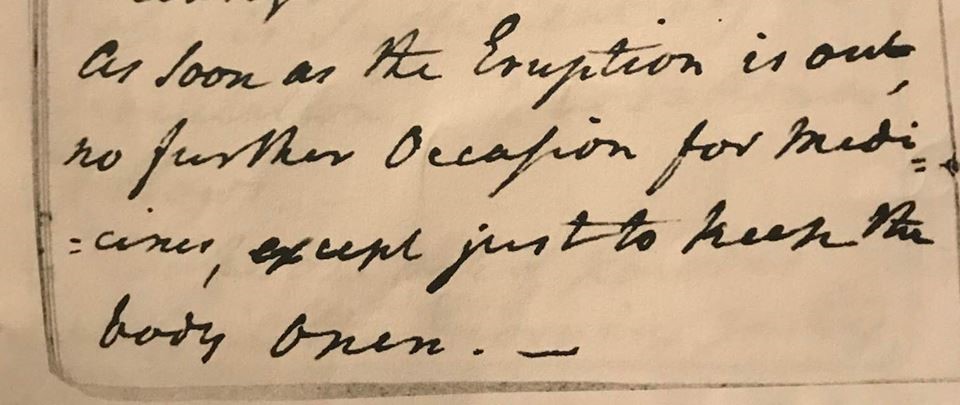 As soon as the Eruption is out,
no further Occasion for Medi=
=cines, except just to keep the
body Open. —